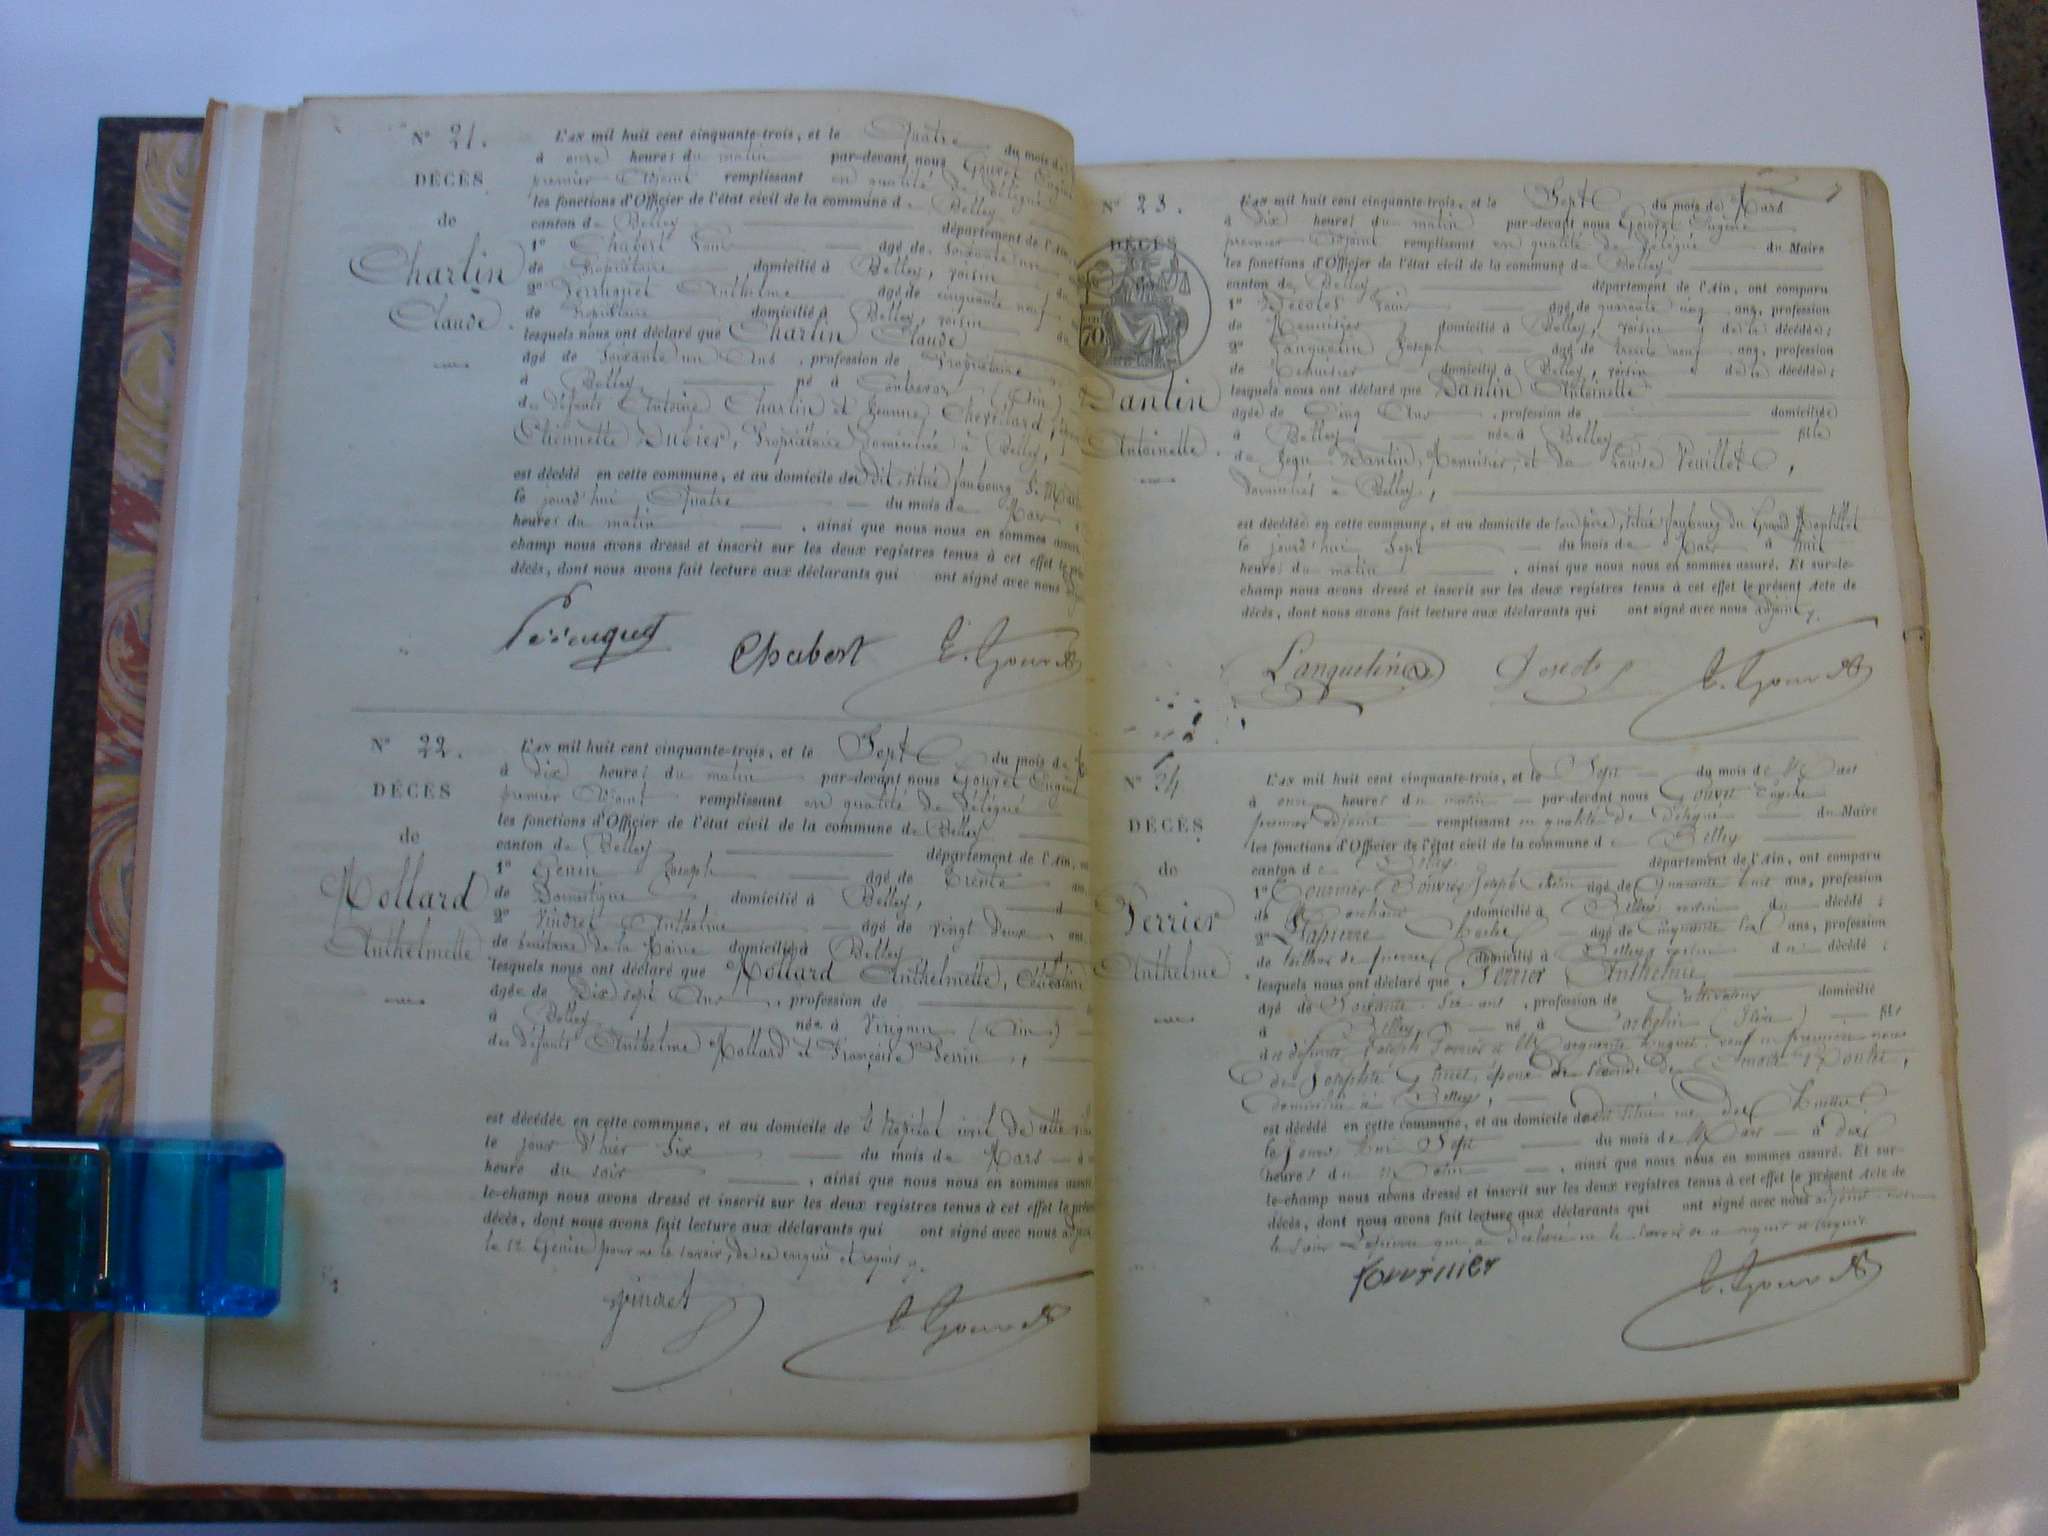 N° 21.
DÉCÈS
de
Charlin
Claude.
L'AN mil huit cent cinquante-trois, et le Quatre du mois de
à onze heures du matin par-devant nous Gouvet Eugène
premier Adjoint remplissant en qualité de Délégué
les fonctions d'Officier de l'état civil de la commune de Belley
canton de Belley département de l'Ain,
1° Chabert Louis âgé de soixante
de Propriétaire domicilié à Belley, voisin du
2° Anthelme âgé de cinquante neuf
de Propriétaire domicilié à Belley, voisin du
lesquels nous ont déclaré que Charlin Claude
âgé de soixante un Ans, profession de Propriétaire
à Belley né à Contrevoz (Ain)
de défunts Antoine Charlin et Jeanne
Etiennette Dubier, Propriétaire domicilié à Belley,
est décédé en cette commune, et au domicile du dit, situé faubourg St
le jourd'hui Quatre du mois de Mars
heures du matin, ainsi que nous nous en sommes assuré
champ nous avons dressé et inscrit sur les deux registres tenus à cet effet le
décès, dont nous avons fait lecture aux déclarants qui ont signé avec nous
Chabert E. Gouvet
N° 22.
DÉCÈS
de
Mollard
Anthelmette
L'AN mil huit cent cinquante-trois, et le Sept du mois de
à dix heures du matin par-devant nous Gouvet Eugène
premier Adjoint remplissant en qualité de Délégué
les fonctions d'Officier de l'état civil de la commune de Belley
canton de Belley département de l'Ain,
1° Genin Joseph âgé de Trente
de Domestique domicilié à Belley,
2° Vindret Anthelme âgé de vingt deux
de Secrétaire de la Mairie domicilié à Belley
lesquels nous ont déclaré que Mollard Anthelmette, Célibataire
âgée de Dix sept Ans, profession de
à Belley née à Virignin (Ain)
des défunts Anthelme Mollard et Françoise Perrin,
est décédée en cette commune, et au domicile de l'hôpital civil de cette
le jour d'hier Six du mois de Mars
heure du soir, ainsi que nous nous en sommes assuré
le-champ nous avons dressé et inscrit sur les deux registres tenus à cet effet le
décès, dont nous avons fait lecture aux déclarants qui ont signé avec nous
le Sr Genin pour ne le savoir, de ce enquis et requis
Vindret E. Gouvet
N° 23.
DÉCÈS
70
Dantin
Antoinette.
L'AN mil huit cent cinquante-trois, et le Sept du mois de Mars
à dix heures du matin par-devant nous Gouvet Eugène
premier Adjoint remplissant en qualité de Délégué du Maire
les fonctions d'Officier de l'état civil de la commune de Belley
canton de Belley département de l'Ain, ont comparu
1° Louis âgé de quarante ans, profession
de Menuisier domicilié à Belley, voisin de la décédée;
2° Languetin Joseph âgé de trente neuf ans, profession
de Menuisier domicilié à Belley, voisin de la décédée;
lesquels nous ont déclaré que Dantin Antoinette
âgée de Cinq Ans, profession de domiciliée
à Belley née à Belley fille
de Jean Dantin, Menuisier, et de Louise Peuillet,
domiciliés à Belley,
est décédée en cette commune, et au domicile de son père, situé faubourg du Grand
le jourd'hui Sept du mois de Mars à huit
heures du matin, ainsi que nous nous en sommes assuré. Et sur-le-
champ nous avons dressé et inscrit sur les deux registres tenus à cet effet le présent Acte de
décès, dont nous avons fait lecture aux déclarants qui ont signé avec nous adjoint.
Languetin E. Gouvet
N° 24
DÉCÈS
de
Perrier
Anthelme
L'AN mil huit cent cinquante-trois, et le Sept du mois de Mars
à onze heures du matin par-devant nous Gouvet Eugène
premier adjoint remplissant en qualité de Délégué du Maire
les fonctions d'Officier de l'état civil de la commune de Belley
canton de Belley département de l'Ain, ont comparu
1° Fournier Joseph âgé de Quarante huit ans, profession
de Marchand domicilié à Belley voisin du décédé;
2° Lapierre âgé de Cinquante ans, profession
de tailleur de pierres domicilié à Belley voisin du décédé;
lesquels nous ont déclaré que Perrier Anthelme
âgé de Soixante six ans, profession de Cultivateur domicilié
à Belley né à Corbelin (Isère) fils
de défunts Joseph Perrier et Marguerite veuf en premières noces
de Josephte époux en secondes de
domicilié à Belley,
est décédé en cette commune, et au domicile du dit situé rue des
le jourd'hui Sept du mois de Mars à dix
heures du matin, ainsi que nous nous en sommes assuré. Et sur-
le-champ nous avons dressé et inscrit sur les deux registres tenus à cet effet le présent Acte de
décès, dont nous avons fait lecture aux déclarants qui ont signé avec nous adjoint
le Sieur Lapierre qui a déclaré ne le savoir de ce enquis et requis
Fournier E. Gouvet